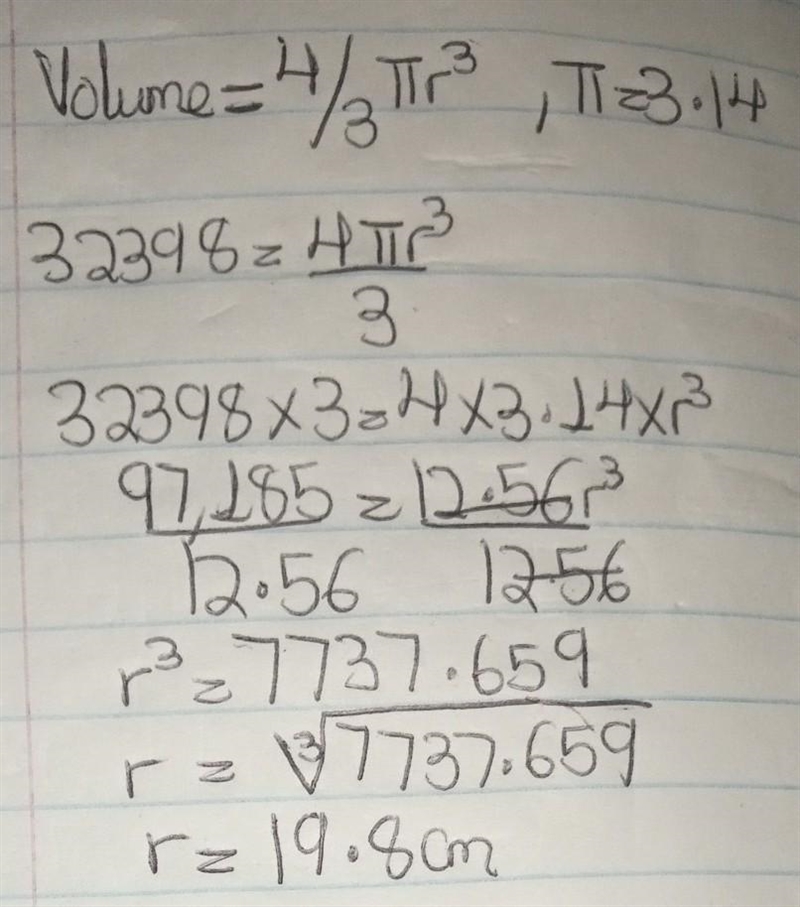 Volume = 4/3 πr³ , π = 3.14
32398 = 4πr³/3
32398 × 3 = 4 × 3.14 × r³
97,185/12.56 = 12.56r³/12.56
r³ = 7737.659
r = ³√7737.659
r = 19.8cm